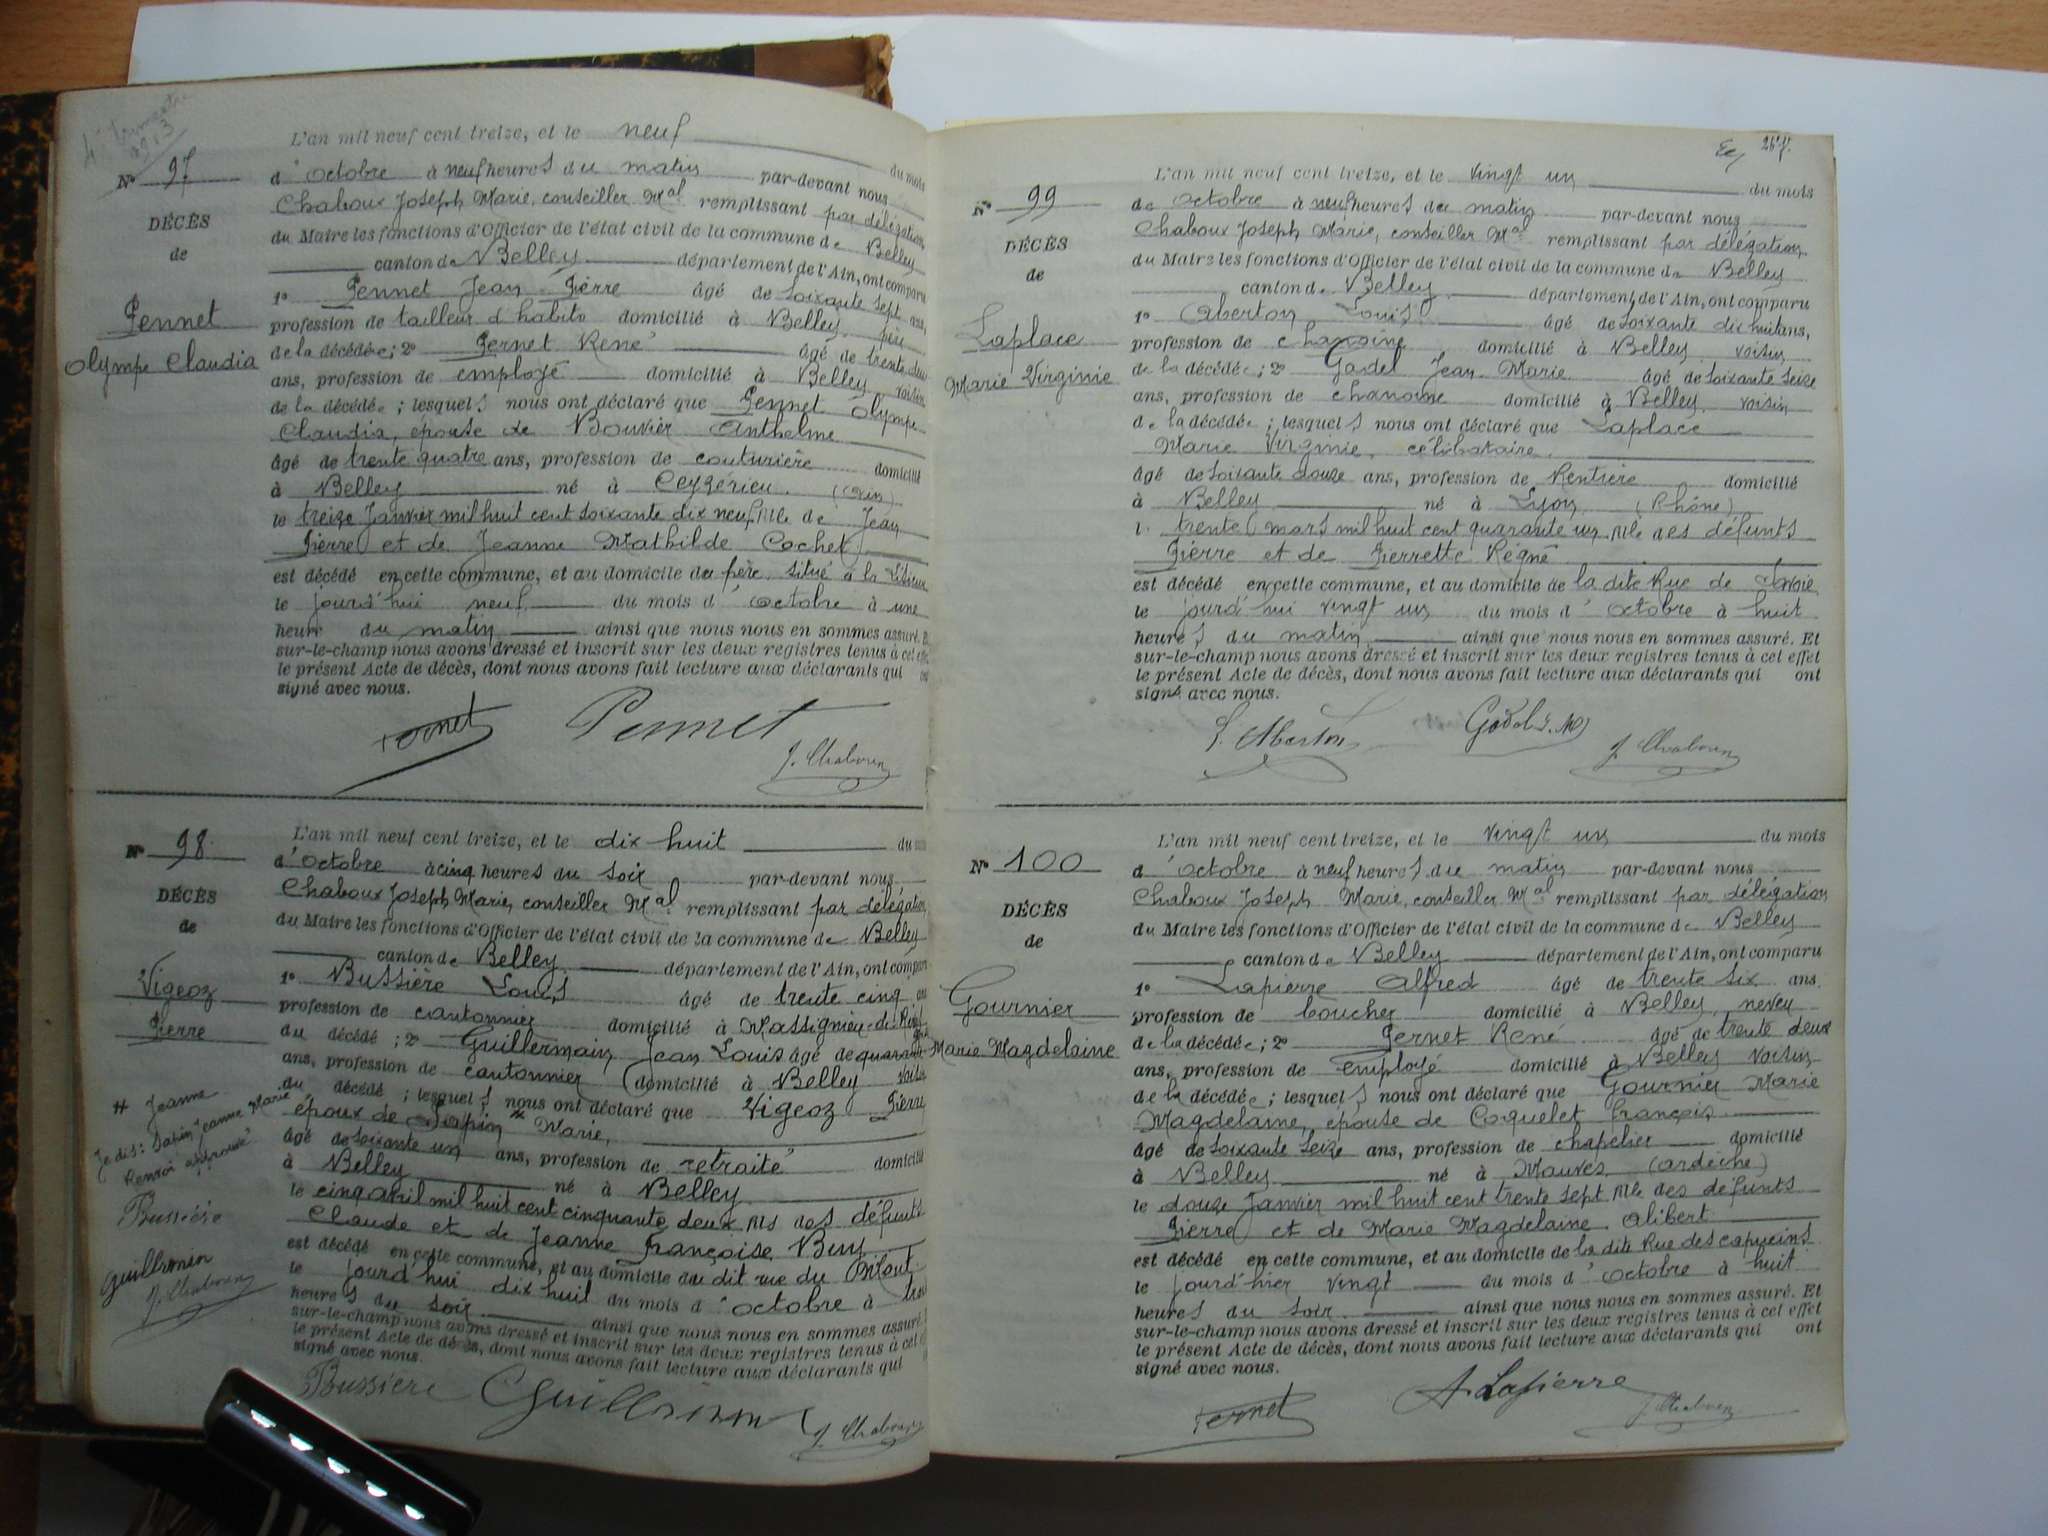 4e trimestre
1913
L'an mil neuf cent treize, et le neuf du mois
No 97
d'octobre à neuf heures du matin par-devant nous
Chaboux Joseph Marie, conseiller Mal remplissant par délégation
DÉCÈS
du Maire les fonctions d'Officier de l'état civil de la commune de Belley
de
canton de Belley département de l'Ain, ont comparu
1o Pennet Jean Pierre âgé de soixante sept ans,
Pennet
profession de tailleur d'habits domicilié à Belley, père
Olympe Claudia
de la décédée; 2o Pernet René âgé de trente deux
ans, profession de employé domicilié à Belley, voisin
de la décédée; lesquels nous ont déclaré que Pennet Olympe
Claudia, épouse de Bouvier Anthelme
âgé de trente quatre ans, profession de couturière domicilié
à Belley né à Ceyzerieu (Ain)
le treize Janvier mil huit cent soixante dix neuf, fille de Jean
Pierre et de Jeanne Mathilde Cochet
est décédé en cette commune, et au domicile du père, situé à la
le jourd'hui neuf du mois d'octobre à une
heure du matin ainsi que nous nous en sommes assuré. Et
sur-le-champ nous avons dressé et inscrit sur les deux registres tenus à cet effet
le présent Acte de décès, dont nous avons fait lecture aux déclarants qui ont
signé avec nous.
Pernet Pennet J. Chaboux
L'an mil neuf cent treize, et le dix huit du mois
No 98
d'octobre à cinq heures du soir par-devant nous,
Chaboux Joseph Marie, conseiller Mal remplissant par délégation
DÉCÈS
du Maire les fonctions d'Officier de l'état civil de la commune de Belley
de
canton de Belley département de l'Ain, ont comparu
Vigeoz
1o Bussière Louis âgé de trente cinq ans
Pierre
profession de cantonnier domicilié à Massignieu-de-Rives
du décédé; 2o Guillermain Jean Louis âgé de quarante
ans, profession de cantonnier domicilié à Belley voisin
du décédé; lesquels nous ont déclaré que Vigeoz Pierre
# Jeanne
époux de Sapin # Marie,
Je dis: Sapin Jeanne Marie
Renvoi approuvé
âgé de soixante un ans, profession de retraité domicilié
à Belley né à Belley
Bussière
le cinq avril mil huit cent cinquante deux, fils des défunts
Claude et de Jeanne Françoise Buy
Guillermin
est décédé en cette commune, et au domicile du dit rue du Mont
J. Chaboux
le jourd'hui dix huit du mois d'octobre à trois
heures du soir ainsi que nous nous en sommes assuré.
sur-le-champ nous avons dressé et inscrit sur les deux registres tenus à cet
le présent Acte de décès, dont nous avons fait lecture aux déclarants qui
signé avec nous.
Bussiere Guillermin J. Chaboux
26 f.
L'an mil neuf cent treize, et le vingt un du mois
No 99
de octobre à neuf heures du matin par-devant nous
Chaboux Joseph Marie, conseiller Mal remplissant par délégation
DÉCÈS
du Maire les fonctions d'Officier de l'état civil de la commune de Belley
de
canton de Belley département de l'Ain, ont comparu
1o Aberton Louis âgé de soixante dix huit ans,
Laplace
profession de chanoine domicilié à Belley, voisin
Marie Virginie
de la décédée; 2o Godel Jean Marie âgé de soixante seize
ans, profession de chanoine domicilié à Belley, voisin
de la décédée; lesquels nous ont déclaré que Laplace
Marie Virginie, célibataire,
âgé de soixante douze ans, profession de Rentière domicilié
à Belley né à Lyon (Rhône)
le trente mars mil huit cent quarante un, fille des défunts
Pierre et de Pierrette Régné
est décédé en cette commune, et au domicile de la dite Rue de Savoie
le jourd'hui vingt un du mois d'octobre à huit
heures du matin ainsi que nous nous en sommes assuré. Et
sur-le-champ nous avons dressé et inscrit sur les deux registres tenus à cet effet
le présent Acte de décès, dont nous avons fait lecture aux déclarants qui ont
signé avec nous.
L. Aberton Godel J. M. J. Chaboux
L'an mil neuf cent treize, et le vingt un du mois
No 100
d'octobre à neuf heures du matin par-devant nous
Chaboux Joseph Marie, conseiller Mal remplissant par délégation
DÉCÈS
du Maire les fonctions d'Officier de l'état civil de la commune de Belley
de
canton de Belley département de l'Ain, ont comparu
1o Lapierre Alfred âgé de trente six ans
Gournier
profession de boucher domicilié à Belley, neveu
Marie Magdelaine
de la décédée; 2o Pernet René âgé de trente deux
ans, profession de employé domicilié à Belley voisin
de la décédée; lesquels nous ont déclaré que Gournier Marie
Magdelaine, épouse de Coquelet François
âgé de soixante seize ans, profession de chapelier domicilié
à Belley né à Mauves (Ardèche)
le douze Janvier mil huit cent trente sept, fille des défunts
Pierre et de Marie Magdelaine Alibert
est décédé en cette commune, et au domicile de la dite Rue des capucins
le jourd'hier vingt du mois d'octobre à huit
heures du soir ainsi que nous nous en sommes assuré. Et
sur-le-champ nous avons dressé et inscrit sur les deux registres tenus à cet effet
le présent Acte de décès, dont nous avons fait lecture aux déclarants qui ont
signé avec nous.
Pernet A. Lapierre J. Chaboux